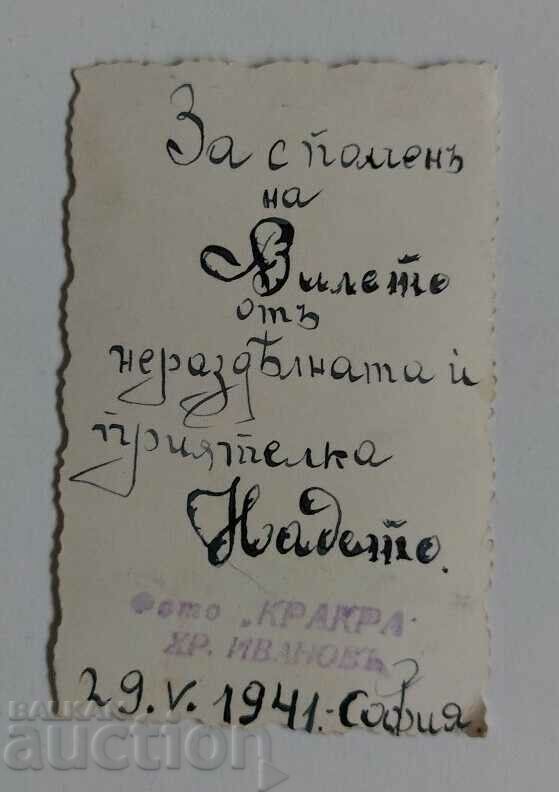 За споменъ
на
Вилето
отъ
нераздѣлната ѝ
приятелка
Надето.
Фото „КРАКРА"
ХР. ИВАНОВЪ
29.V.1941.-София.
БАЛКАН
auction